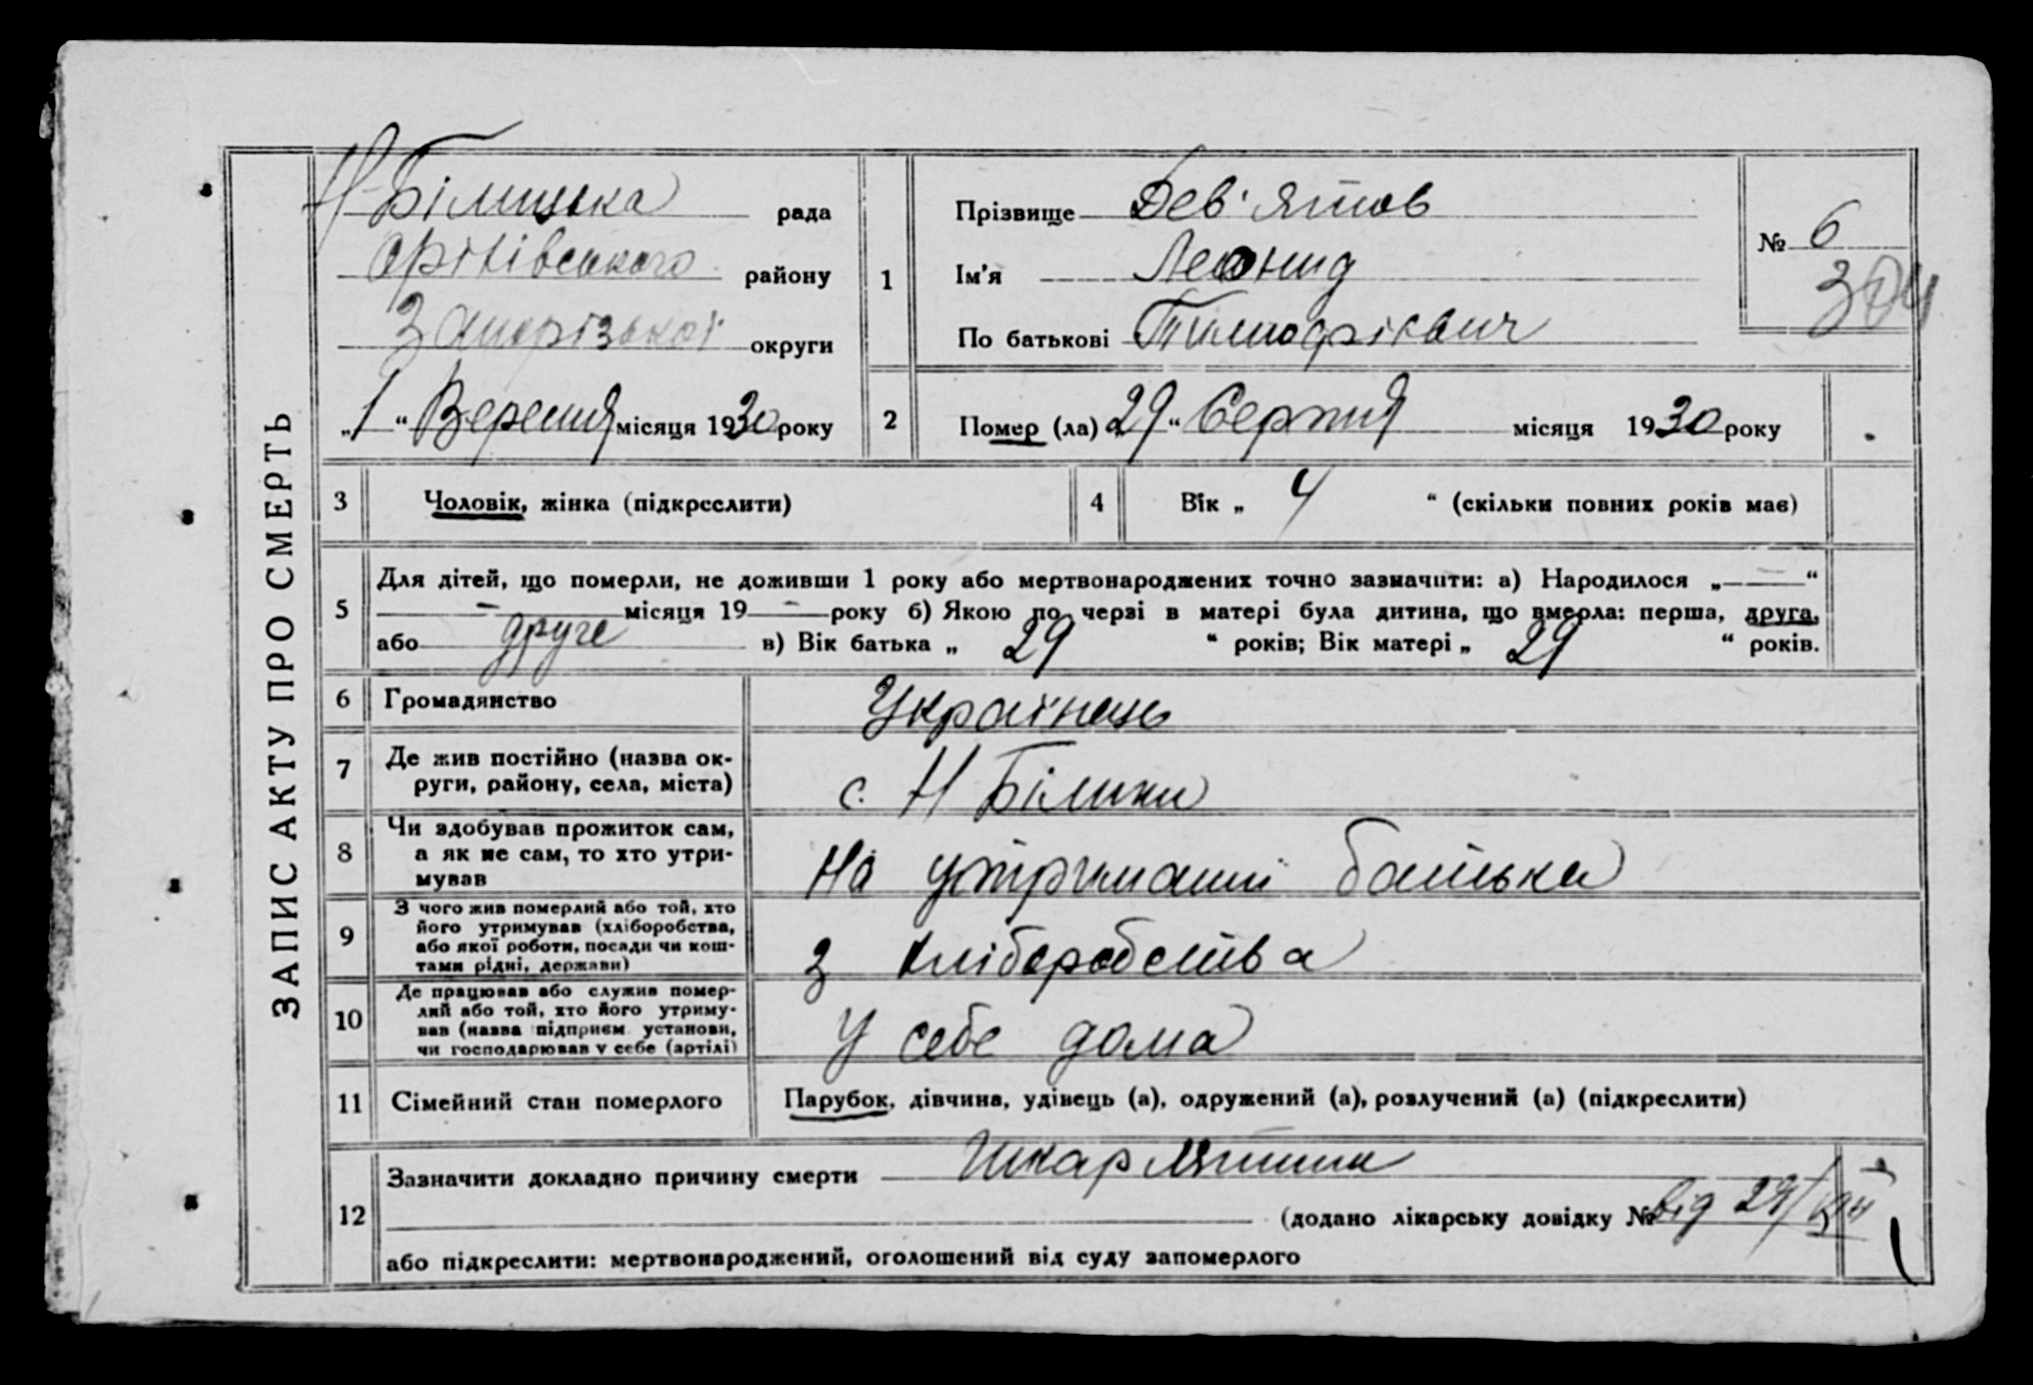 ЗАПИС АКТУ ПРО СМЕРТЬ
Н-Білицька рада
Оріхівського району
Запорізької округи
„1“ Вересня місяця 1930 року
1
Прізвище Дев'ятов
Ім'я Леонид
По батькові Тимофієвич
№ 6
304
2
Помер (ла) 29 “ Серпня місяця 1930 року
3 Чоловік, жінка (підкреслити)
4 Вік „ 4 “ (скільки повних років має)
5
Для дітей, що померли, не доживши 1 року або мертвонароджених точно зазначити: а) Народилося „ – “
– місяця 19 – року б) Якою по черзі в матері була дитина, що вмерла: перша, друга,
або друге в) Вік батька „ 29 “ років; Вік матері „ 29 “ років.
6 Громадянство Українець
7 Де жив постійно (назва ок-
руги, району, села, міста)
с. Н Білики
8 Чи здобував прожиток сам,
а як не сам, то хто утри-
мував
На утриманні батька
9 З чого жив померлий або той, хто
його утримував (хліборобства,
або якої роботи, посади чи кош-
тами рідні, держави)
з хліборобства
10 Де працював або служив помер-
лий або той, хто його утриму-
вав (назва підприєм. установи,
чи господарював у себе (артілі)
У себе дома
11 Сімейний стан померлого Парубок, дівчина, удівець (а), одружений (а), розлучений (а) (підкреслити)
12
Зазначити докладно причину смерти Шкарлятини
(додано лікарську довідку № від 29/VIII
або підкреслити: мертвонароджений, оголошений від суду запомерлого